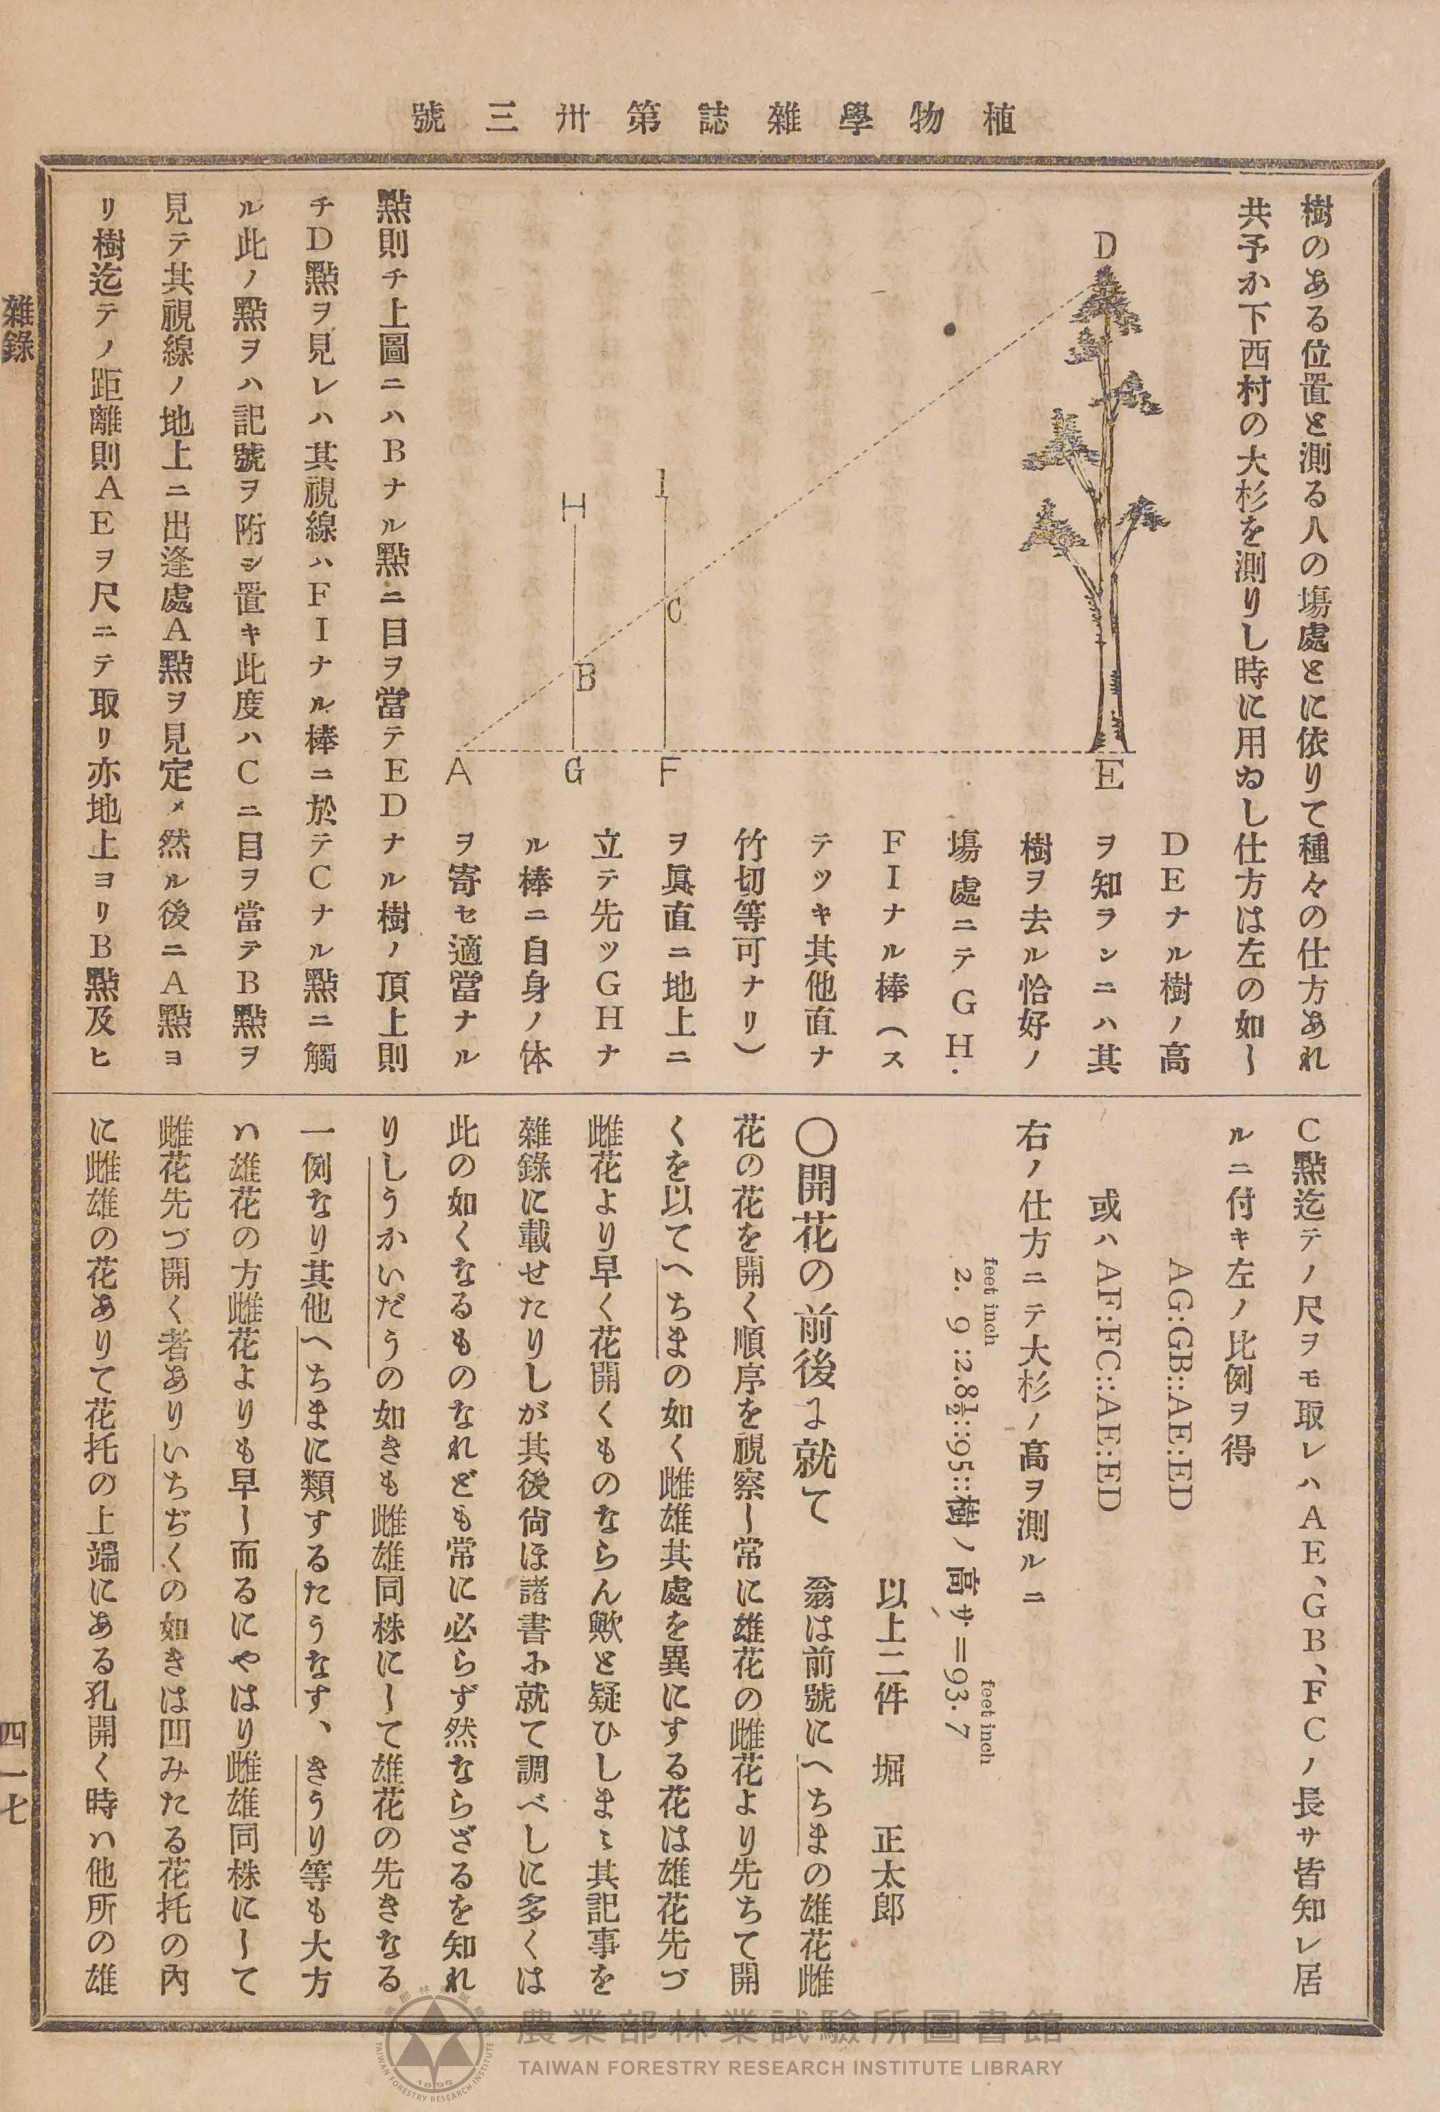 植物學雜誌第卅三號
樹のある位置と測る人の塲處とに依りて種々の仕方あれ
共予か下西村の大杉を測りし時に用ゐし仕方は左の如し
D
H
I
C
B
A
G
F
E
DEナル樹ノ高
ヲ知ランニハ其
樹ヲ去ル恰好ノ
塲處ニテGH.
FIナル棒(ス
テツキ其他直ナ
竹切等可ナリ)
ヲ眞直ニ地上ニ
立テ先ツGHナ
ル棒ニ自身ノ体
ヲ寄セ適當ナル
點則チ上圖ニハBナル點ニ目ヲ當テEDナル樹ノ頂上則
チD點ヲ見レハ其視線ハFIナル棒ニ於テCナル點ニ觸
ル此ノ點ヲハ記號ヲ附シ置キ此度ハCニ目ヲ當テB點ヲ
見テ其視線ノ地上ニ出逢處A點ヲ見定メ然ル後ニA點ヨ
リ樹迄テノ距離則AEヲ尺ニテ取リ亦地上ヨリB點及ヒ
C點迄テノ尺ヲモ取レハAE、GB、FCノ長サ皆知レ居
ルニ付キ左ノ比例ヲ得
AG:GB::AE:ED
或ハAF:FC::AE:ED
右ノ仕方ニテ大杉ノ高ヲ測ルニ
feet inch feet inch
2. 9 :2.8½::95::樹ノ高サ=93.7
以上二件 堀 正太郎
〇開花の前後に就て 翁は前號にへちまの雄花雌
花の花を開く順序を視察し常に雄花の雌花より先ちて開
くを以てへちまの如く雌雄其處を異にする花は雄花先づ
雌花より早く花開くものならん歟と疑ひしまゝ其記事を
雜錄に載せたりしが其後尙ほ諸書に就て調べしに多くは
此の如くなるものなれども常に必らず然ならざるを知れ
りしうかいだうの如きも雌雄同株にして雄花の先きなる
一例なり其他へちまに類するたうなす、きうり等も大方
ハ雄花の方雌花よりも早し而るにやはり雌雄同株にして
雌花先づ開く者ありいちぢくの如きは凹みたる花托の內
に雌雄の花ありて花托の上端にある孔開く時ハ他所の雄
雜錄
四一七
農業部林業試驗所圖書館
TAIWAN FORESTRY RESEARCH INSTITUTE LIBRARY
TAIWAN FORESTRY RESEARCH INSTITUTE
1896